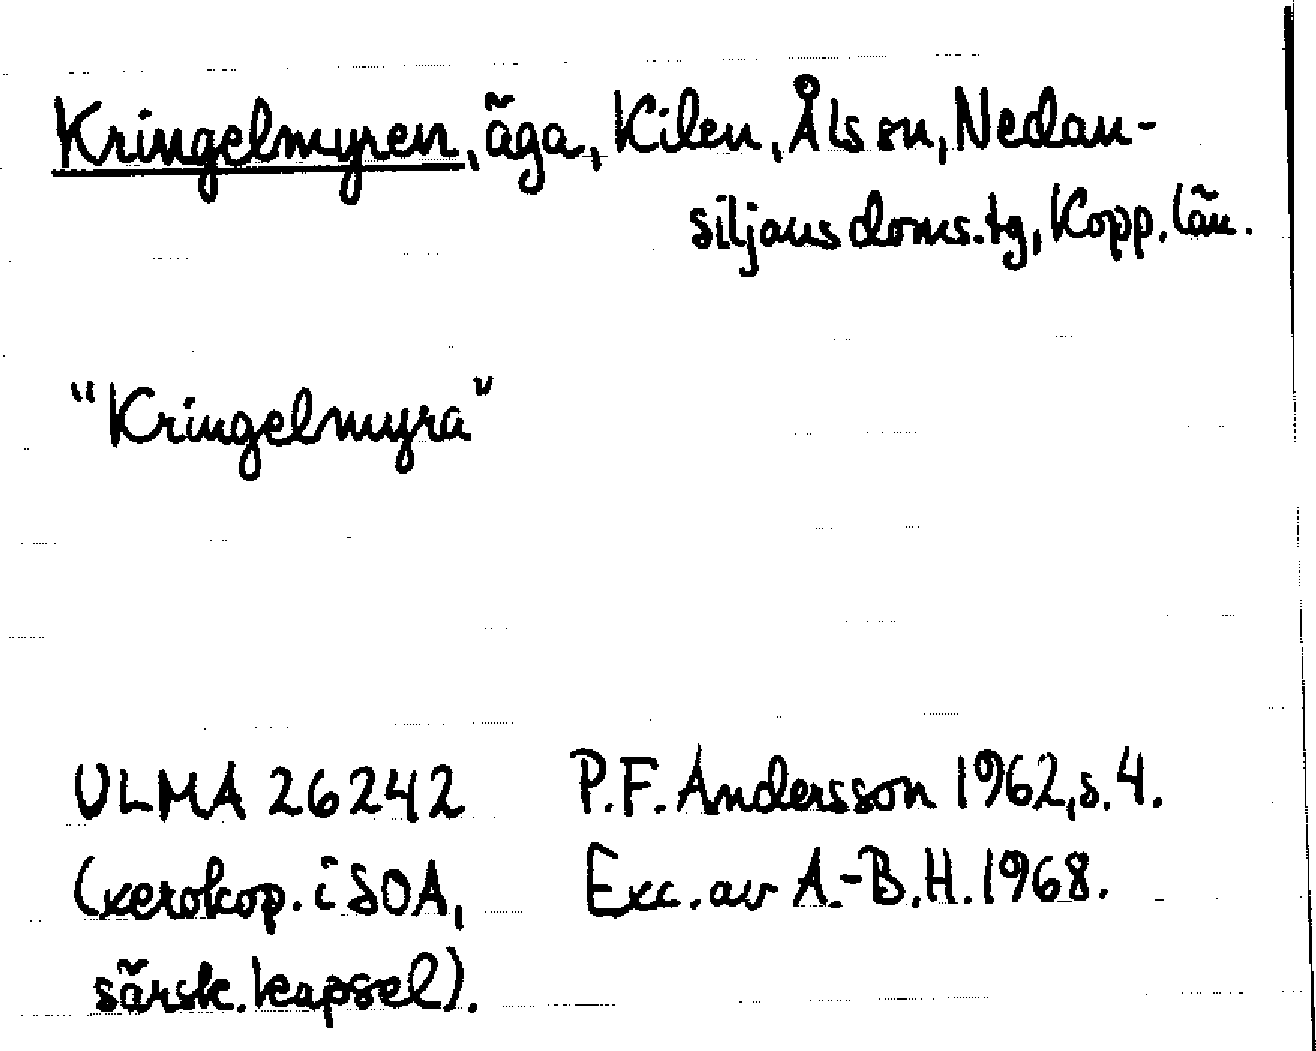 Kringelmyren, äga, Kilen, Ål sn, Nedan-
siljans doms.tg, Kopp. län.
"Kringelmyra"
ULMA 26242
(xerokop. i SOA,
särsk. kapsel).
P.F. Andersson 1962, s. 4.
Exc. av A.-B.H. 1968.